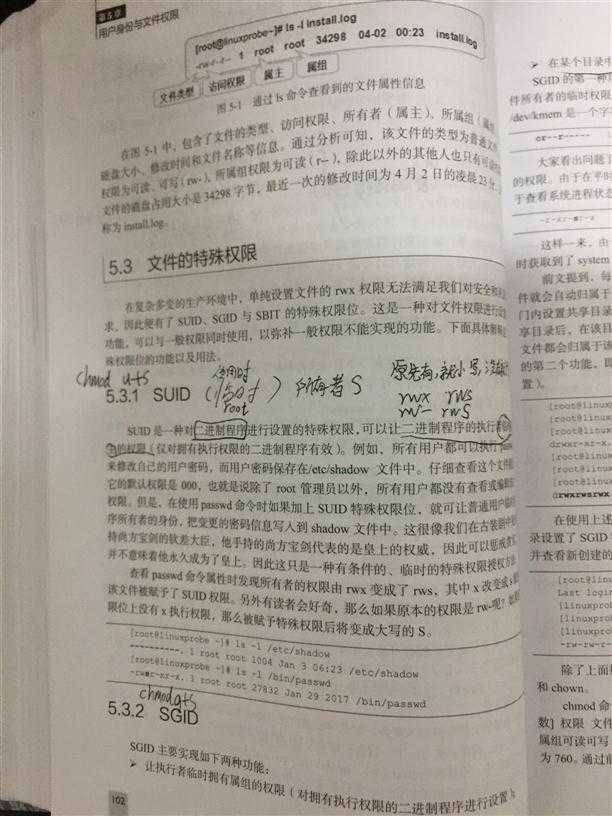 第5章
用户身份与文件权限
[root@linuxprobe~]# ls -l install.log
-rw-r--r-- 1 root root 34298 04-02 00:23 install.log
文件类型 访问权限 属主 属组
图 5-1 通过 ls 命令查看到的文件属性信息
在图 5-1 中，包含了文件的类型、访问权限、所有者（属主）、所属组（属组）、
磁盘大小、修改时间和文件名称等信息。通过分析可知，该文件的类型为普通文件，
权限为可读、可写（rw-），所属组权限为可读（r--），除此以外的其他人也只有可读
文件的磁盘占用大小是 34298 字节，最近一次的修改时间为 4 月 2 日的凌晨 23 分，
称为 install.log。
5.3 文件的特殊权限
在复杂多变的生产环境中，单纯设置文件的 rwx 权限无法满足我们对安全和
求，因此便有了 SUID、SGID 与 SBIT 的特殊权限位。这是一种对文件权限进行设置
功能，可以与一般权限同时使用，以弥补一般权限不能实现的功能。下面具体解释
殊权限位的功能以及用法。
chmod u+s
5.3.1 SUID
(使用时 临时 root) 所有者 S
原先有，就小写，
rwx rws
rw- rwS
SUID 是一种对二进制程序进行设置的特殊权限，可以让二进制程序的执行者临时
的权限（仅对拥有执行权限的二进制程序有效）。例如，所有用户都可以执行 passwd
来修改自己的用户密码，而用户密码保存在/etc/shadow 文件中。仔细查看这个文件
它的默认权限是 000，也就是说除了 root 管理员以外，所有用户都没有查看或编辑
权限。但是，在使用 passwd 命令时如果加上 SUID 特殊权限位，就可让普通用户临时
序所有者的身份，把变更的密码信息写入到 shadow 文件中。这很像我们在古装剧中
持尚方宝剑的钦差大臣，他手持的尚方宝剑代表的是皇上的权威，因此可以惩戒
并不意味着他永久成为了皇上。因此这只是一种有条件的、临时的特殊权限授权方法
查看 passwd 命令属性时发现所有者的权限由 rwx 变成了 rws，其中 x 改变成 s
该文件被赋予了 SUID 权限。另外有读者会好奇，那么如果原本的权限是 rw-呢？如果
限位上没有 x 执行权限，那么被赋予特殊权限后将变成大写的 S。
[root@linuxprobe ~]# ls -l /etc/shadow
----------. 1 root root 1004 Jan 3 06:23 /etc/shadow
[root@linuxprobe ~]# ls -l /bin/passwd
-rwsr-xr-x. 1 root root 27832 Jan 29 2017 /bin/passwd
chmod g+s
5.3.2 SGID
SGID 主要实现如下两种功能：
➢ 让执行者临时拥有属组的权限（对拥有执行权限的二进制程序进行设置）；
102
➢ 在某个目录中
SGID 的第一种
件所有者的临时权限
/dev/kmem 是一个字
cr--r-----
大家看出问题了
的权限。由于在平时
于查看系统进程状态
-r-xr-sr-x
这样一来，由
时获取到了 system
前文提到，每
件就会自动归属于
门内设置共享目录
享目录后，在该目
文件都会归属于该
的第二个功能，即
置）。
[root@linux
[root@linux
[root@linux
drwxr-xr-x.
[root@linux
[root@linux
[root@linux
drwxrwsrwx
在使用上述
录设置了 SGID
并查看新创建的
[root@linux
Last login
[linuxprob
[linuxprob
[linuxprob
-rw-rw-r-
除了上面
和 chown。
chmod 命
数] 权限 文件
属组可读可写
为 760。通过前